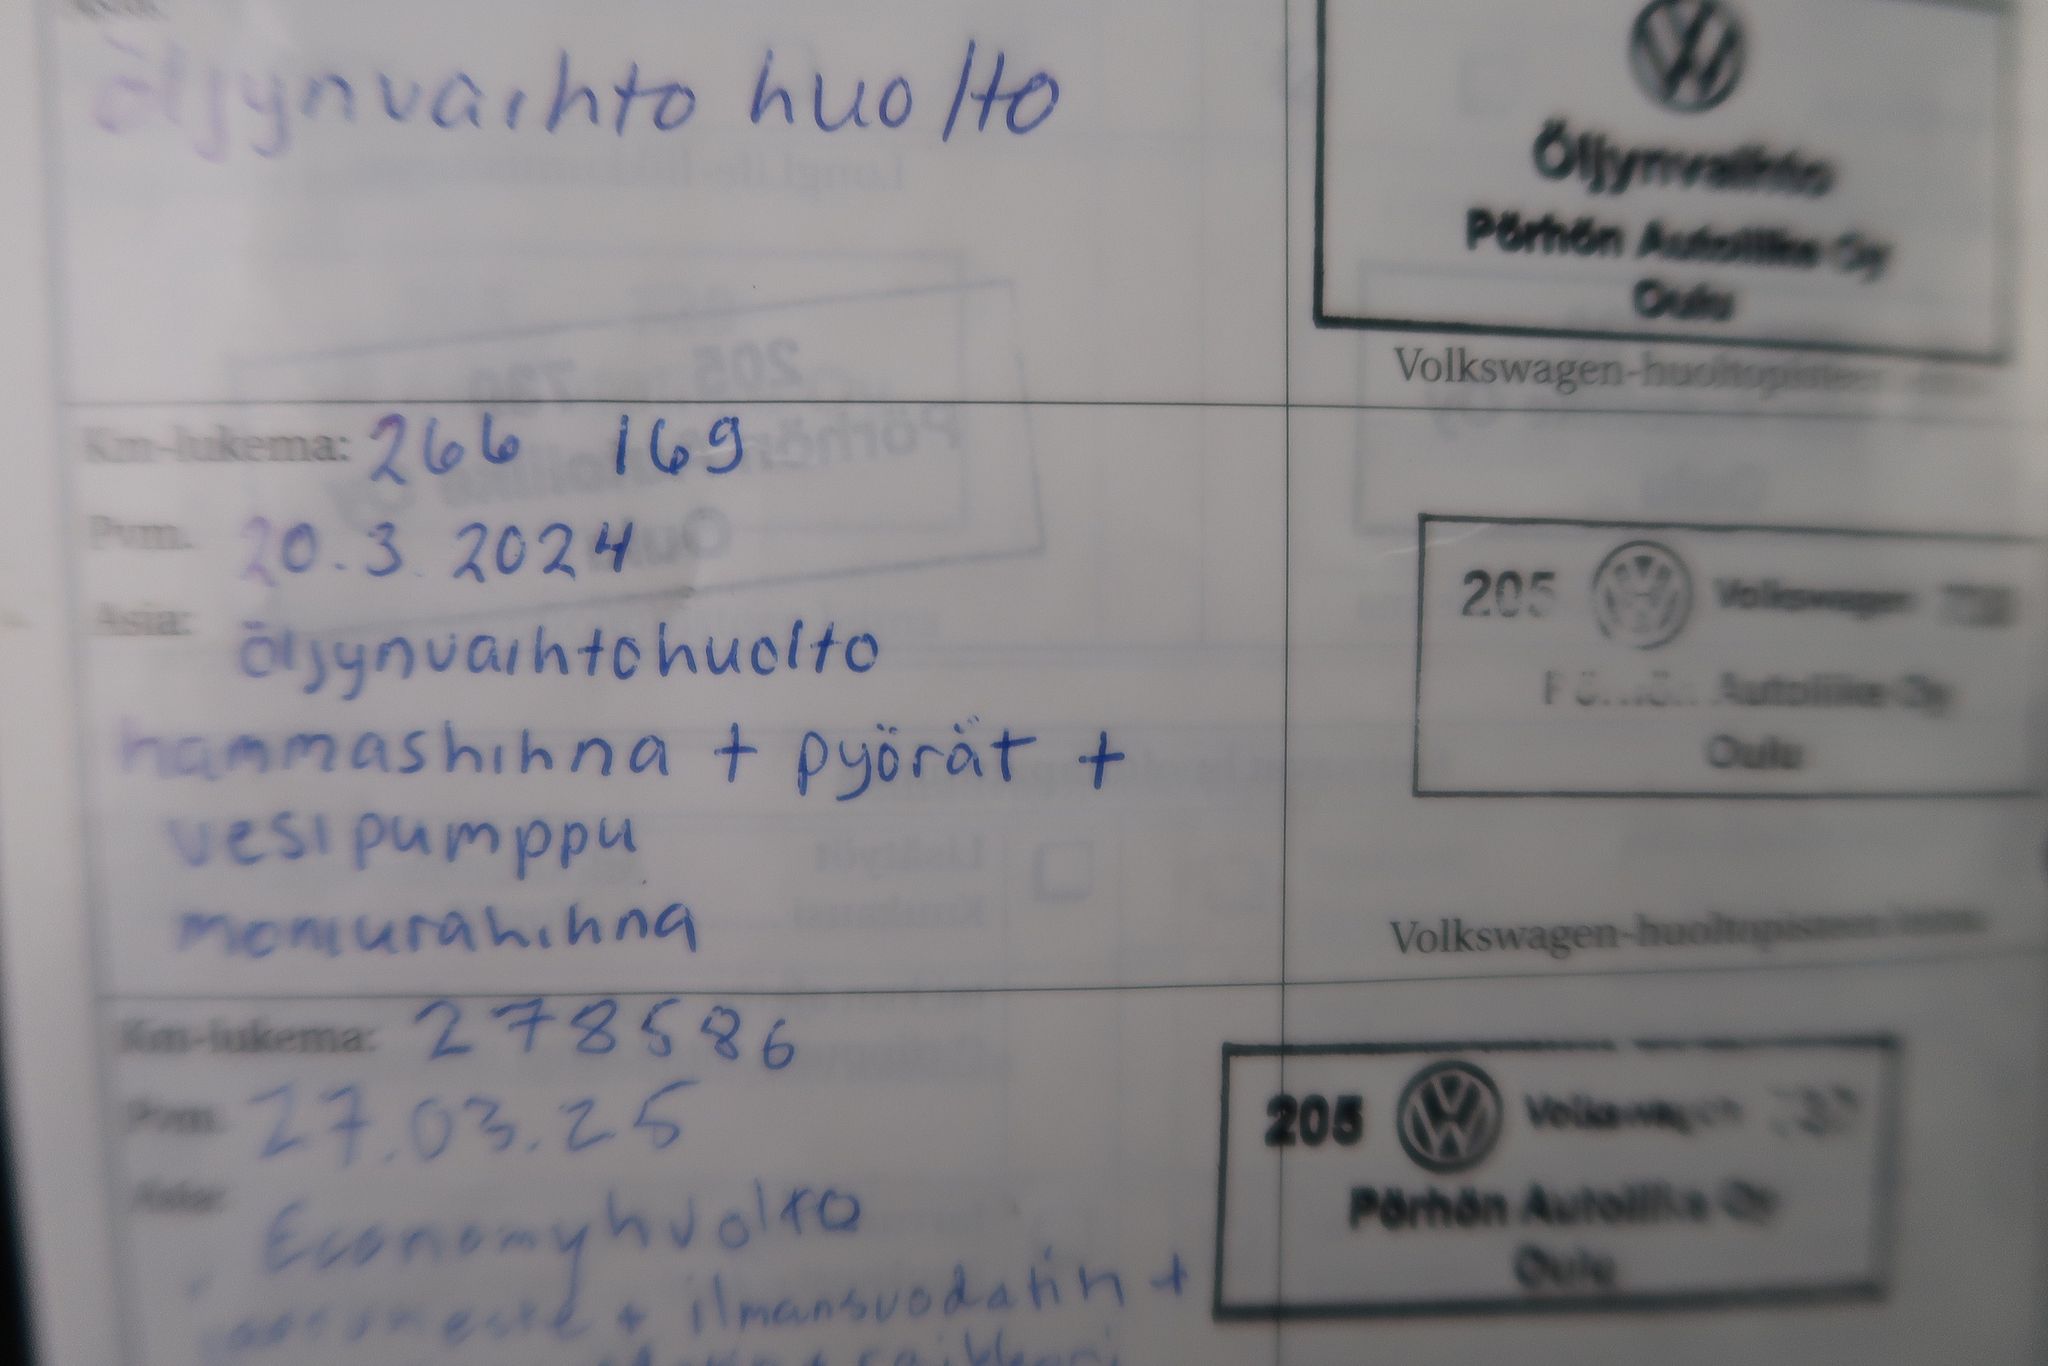 öljynvaihto huolto
Öljynvaihto
Pörhön Autoliike Oy
Oulu
Volkswagen-huoltopisteen
Km-lukema: 266 169
Pvm. 20.3.2024
Asia: öljynvaihtohuolto
hammashihna + pyörät +
vesipumppu
moniurahihna
205 Volkswagen
Pörhön Autoliike Oy
Oulu
Volkswagen-huoltopisteen leima
Km-lukema: 278586
Pvm. 27.03.25
Asia: Economyhuolto
+ ilmansuodatin +
205 Volkswagen
Pörhön Autoliike Oy
Oulu